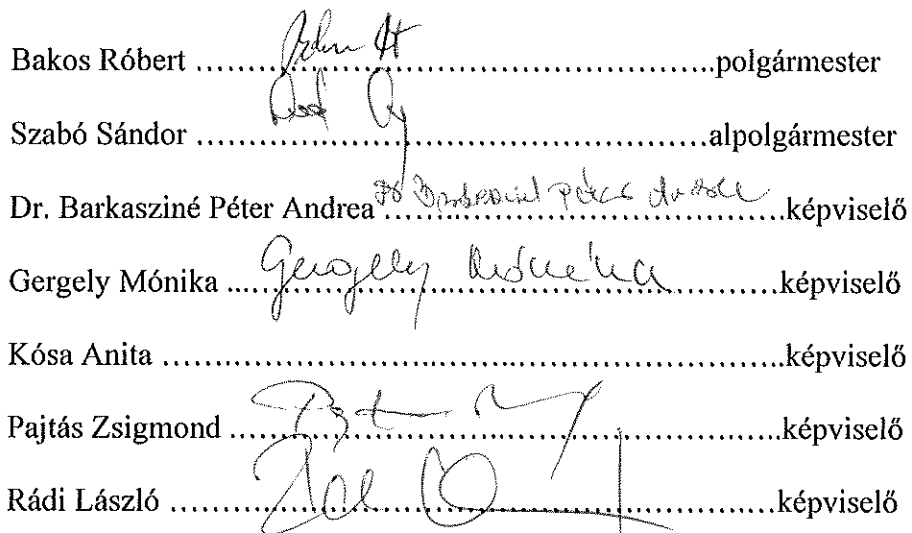 Bakos Róbert ……………………………………………polgármester
Szabó Sándor ……………………………………………alpolgármester
Dr. Barkasziné Péter Andrea ……………………………………képviselő
Gergely Mónika …Gergely Mónika…képviselő
Kósa Anita ……………………………………………képviselő
Pajtás Zsigmond ……………………………………………képviselő
Rádi László ……………………………………………képviselő